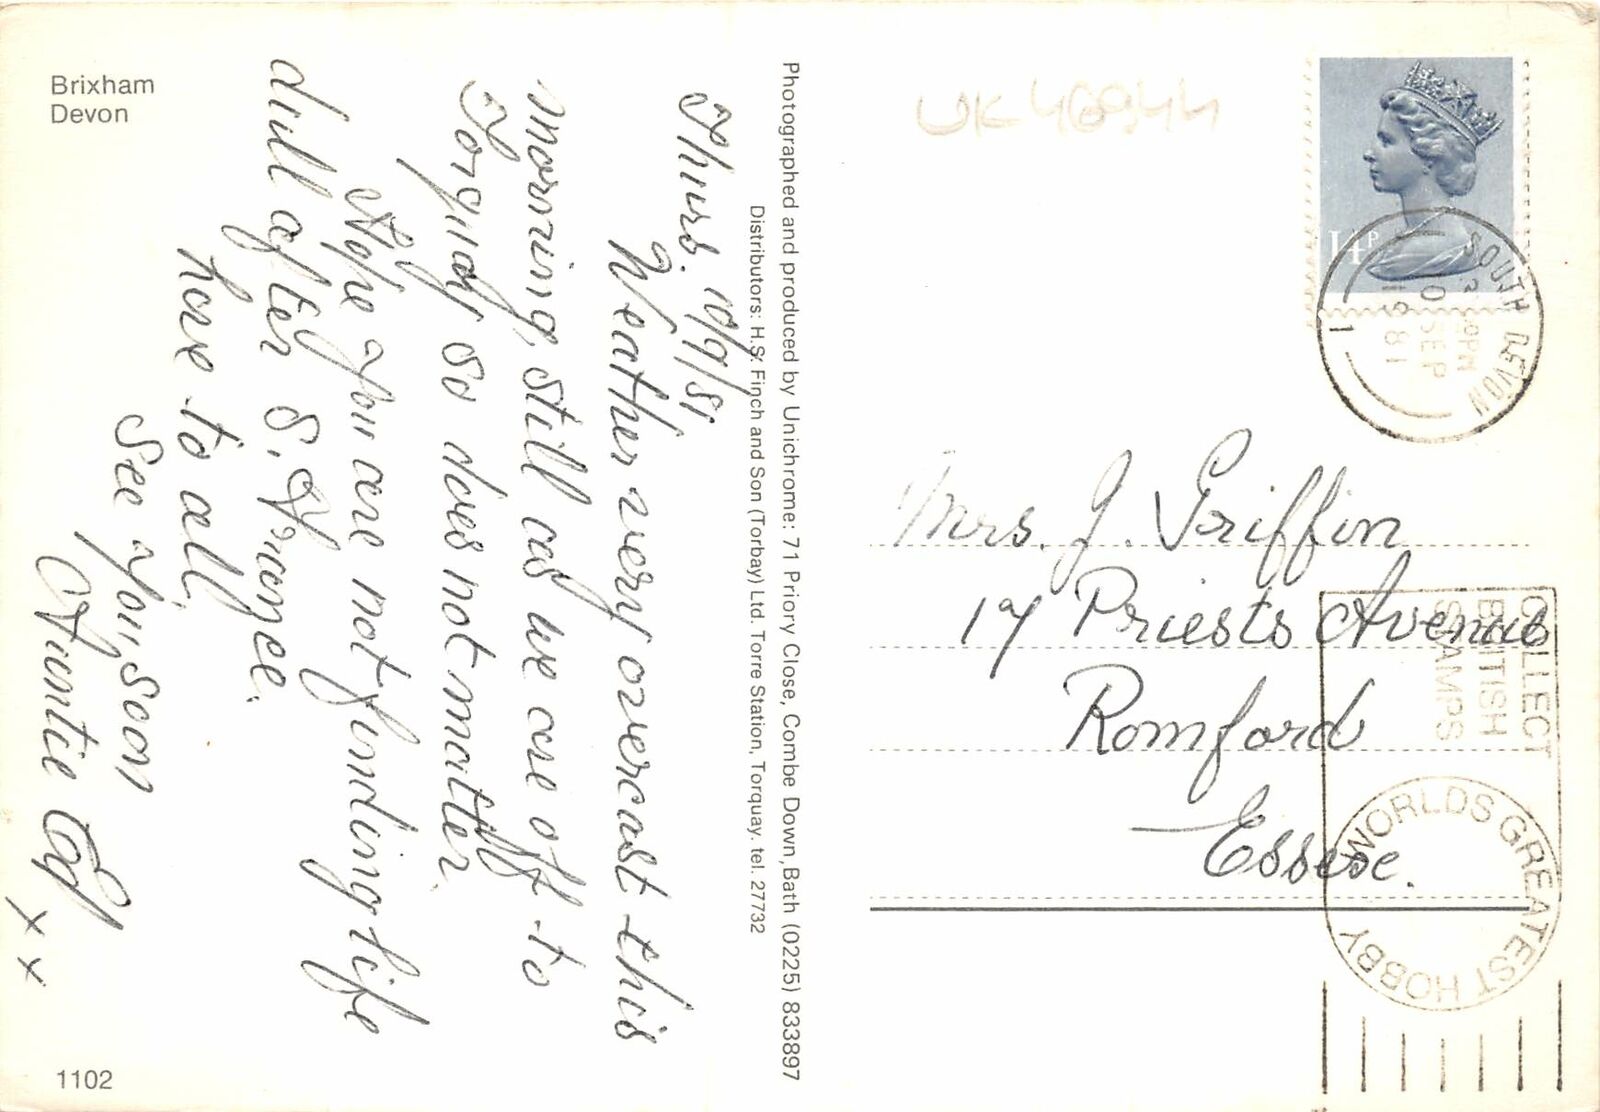 Brixham
Devon
Thurs. 10/9/81
Weather very overcast this
morning, still as we are off to
Torquay so does not matter.
Hope you are not finding life
dull after S. France.
Love to all,
See you, soon
Auntie
x x
1102
Photographed and produced by Unichrome: 71 Priory Close, Combe Down, Bath (0225) 833897
Distributors: H.S. Finch and Son (Torbay) Ltd. Torre Station, Torquay. tel. 27732
UK46944
14P
SOUTH DEVON
10 SEP
1981
1
Mrs. J. Griffin
17 Priests Avenue
Romford
Essex.
COLLECT
BRITISH
STAMPS
WORLDS GREATEST HOBBY